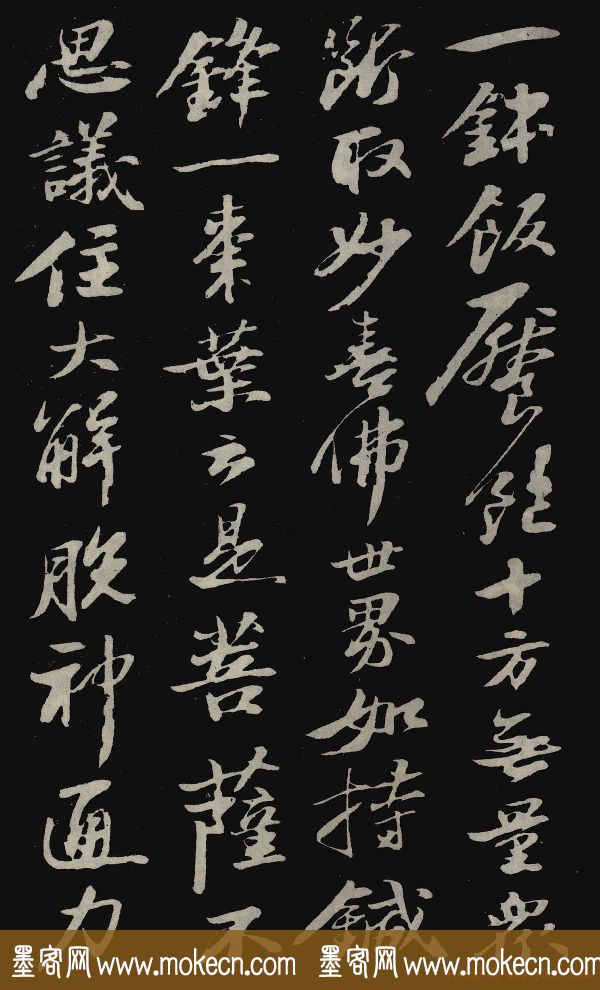 一鉢飯饜飽十方無量衆
斷取妙喜佛世界如持鍼
鋒一棗葉云是菩薩不
思議住大解脫神通力
墨客网 www.mokecn.com 墨客网 www.mokecn.com